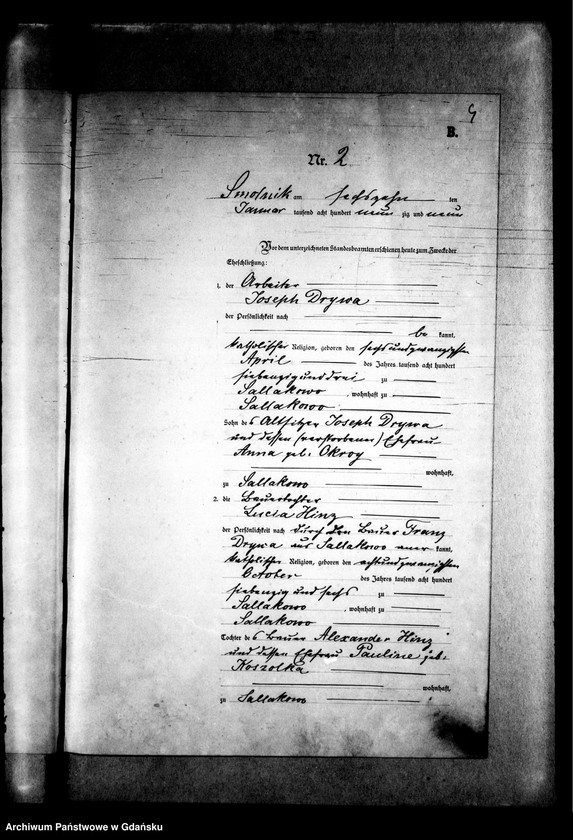 B.
Nr. 2
Smolnik am sechszehn ten
Januar tausend acht hundert neun zig und neun
Vor dem unterzeichneten Standesbeamten erschienen heute zum Zwecke der
Eheschließung:
1. der Arbeiter
Joseph Drywa
der Persönlichkeit nach
be kannt,
katholischer Religion, geboren den sechsundzwanzigsten
April des Jahres tausend acht hundert
siebenzig und drei zu
Sallakowo, wohnhaft zu
Sallakowo
Sohn des Altsitzer Joseph Drywa
und dessen (verstorbenen) Ehefrau
Anna geb. Okroy
wohnhaft,
zu Sallakowo
2. die Bauertochter
Lucia Hinz
der Persönlichkeit nach durch den Bauer Franz
Drywa aus Sallakowo aner kannt,
katholischer Religion, geboren den achtundzwanzigsten
October des Jahres tausend acht hundert
siebenzig und sechs zu
Sallakowo, wohnhaft zu
Sallakowo
Tochter des Bauer Alexander Hinz
und dessen Ehefrau Pauline geb.
Koszolka
wohnhaft,
zu Sallakowo
Archiwum Państwowe w Gdańsku